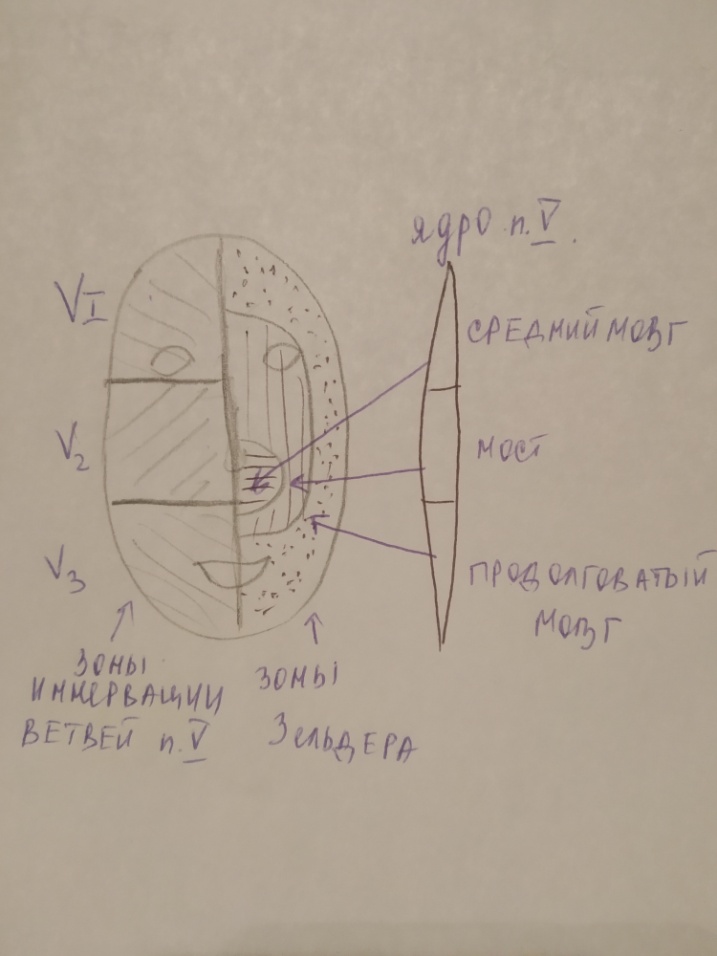 ядро п. V.
VI
СРЕДНИЙ МОЗГ
V2
МОСТ
V3
ПРОДОЛГОВАТЫЙ
МОЗГ
ЗОНЫ
ИННЕРВАЦИИ
ВЕТВЕЙ п. V
ЗОНЫ
ЗЕЛЬДЕРА